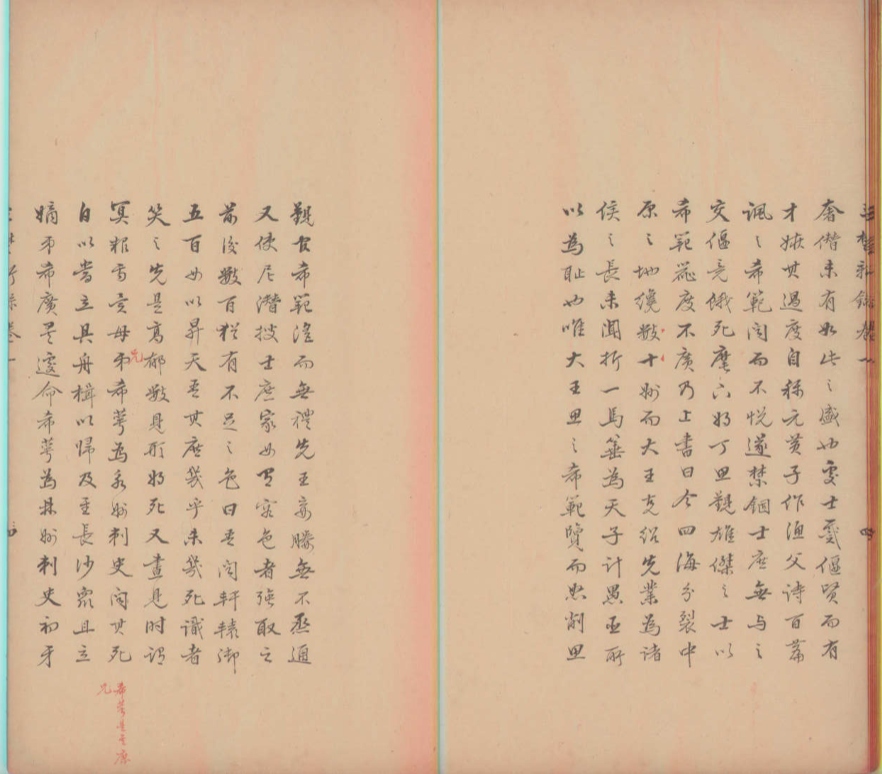 三楚新錄卷一 四
奢僭未有如此之盛也處士戴偃賢而有
才嫉其過度自稱元黃子作漁父詩百篇
諷之希範聞而不悅遂禁錮士庶無与之
交偃竟餓死麾下將丁思覲雄傑之士以
希範器度不廣乃上書曰今四海分裂中
原之地纔數十州而大王克紹先業為諸
侯之長未聞折一馬箠為天子計愚臣所
以為恥也唯大王思之希範覽而忿削思
覲官希範淫而無禮先王妾媵無不烝通
又使尼潛搜士庶家女有容色者強取之
前後數百猶有不足之色曰吾聞軒轅御
五百女以昇天吾其庶幾乎未幾死識者
笑之先是高郁數見形將死又晝見時謂
冥報焉母弟希萼為永州刺史聞其死
兄
希萼是希廣
兄
自以當立具舟楫以歸及至長沙衆且立
嫡弟希廣遂命希萼為州刺史初牙